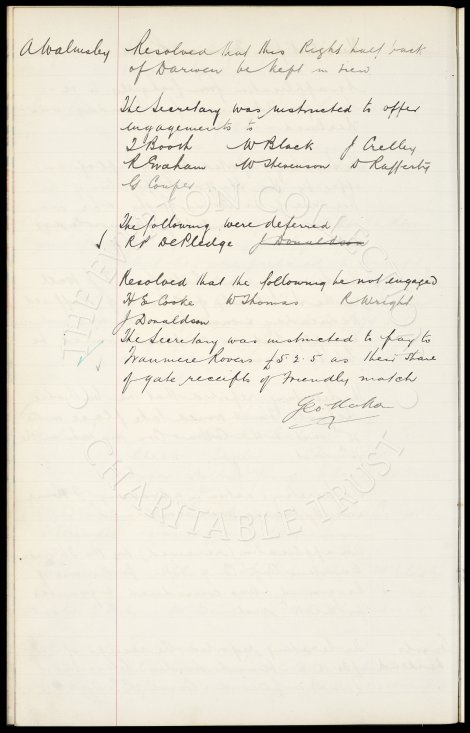 A Walmsley Resolved that this Right half back
of Darwen be kept in view
The Secretary was instructed to offer
engagements to
T Booth W Black J Crelley
R Graham W Stevenson D Rafferty
G Couper
The following were deferred
R P DePledge J Donaldson
Resolved that the following be not engaged
H E Cooke W Thomas R Wright
J Donaldson
The Secretary was instructed to pay to
Tranmere Rovers £5.2.5 as their share
of gate receipts of friendly match
Geo Mahon
THE EVERTON COLLECTION
CHARITABLE TRUST